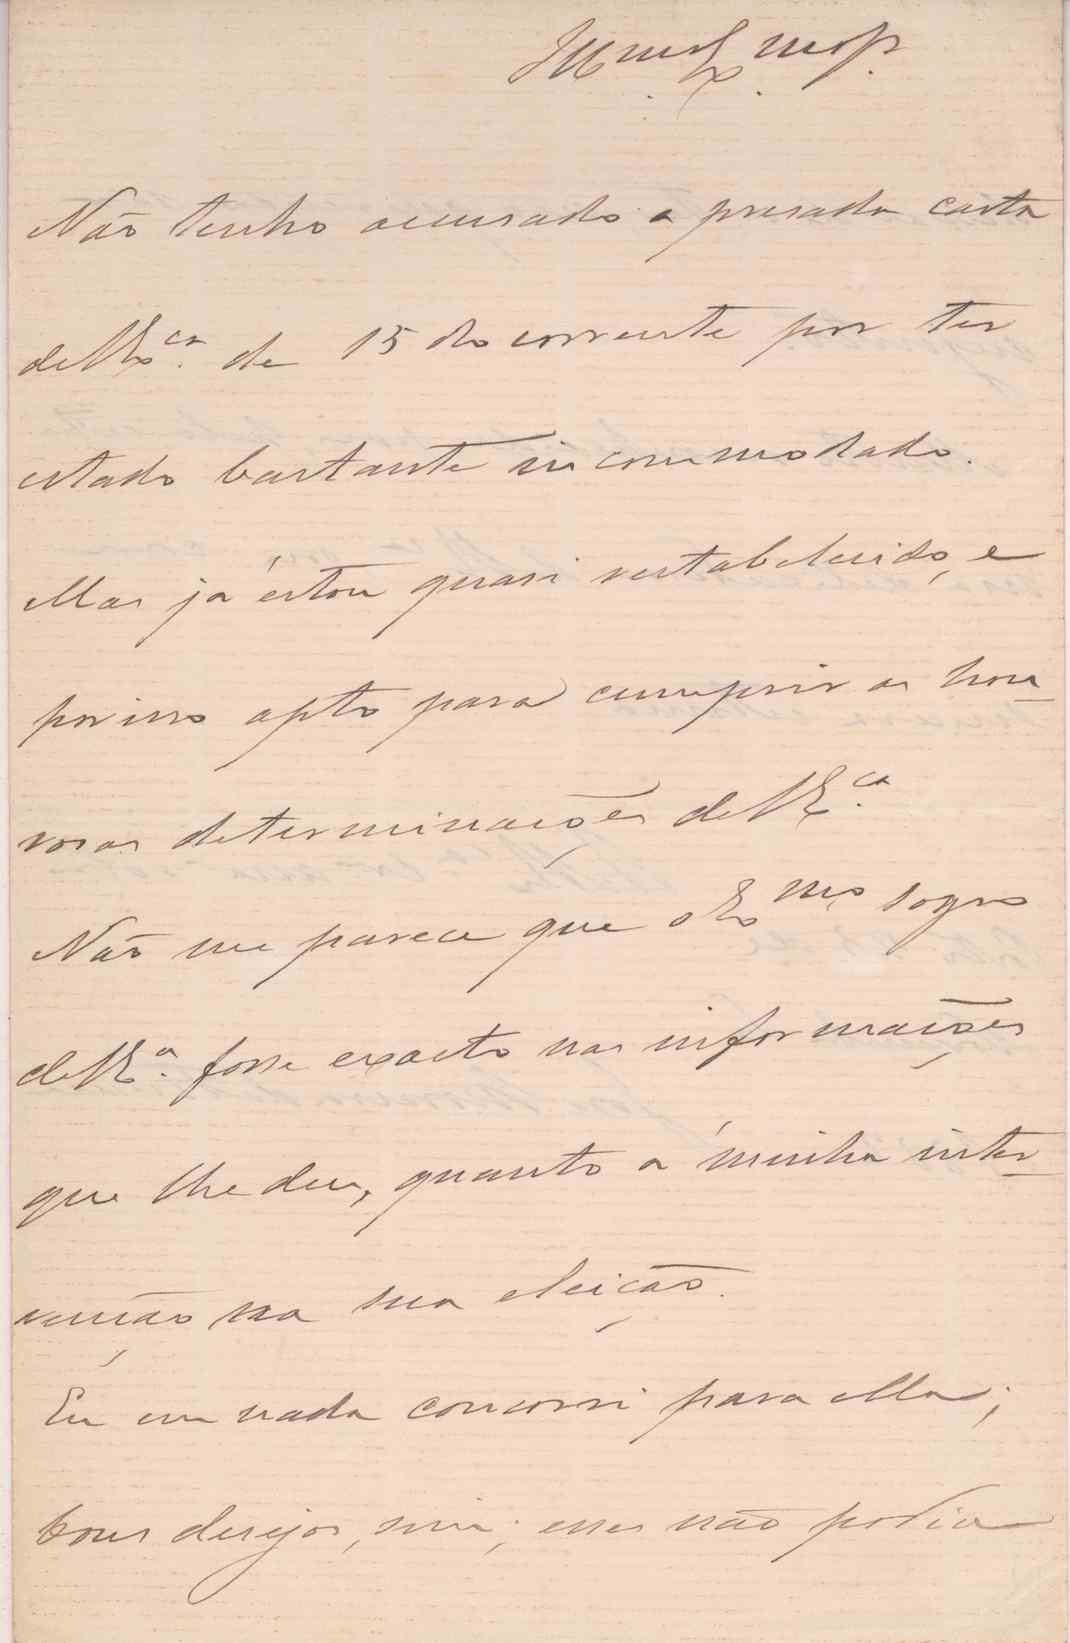 Illmo. Exmo. Sr.
Não tenho accusado a presada carta
de V. Exca. de 15 do corrente por ter
estado bastante incommodado.
Mas já estou quasi restabelecido, e
por isso apto para cumprir as hon-
rosas determinações de V. Eca.
Não me parece que o Exmo. sogro
de V. Ea. fosse exacto nas informações
que lhe deu, quanto á minha inter-
venção na sua eleição.
Eu em nada concorri para ella;
bons desejos, sim; esses não podia